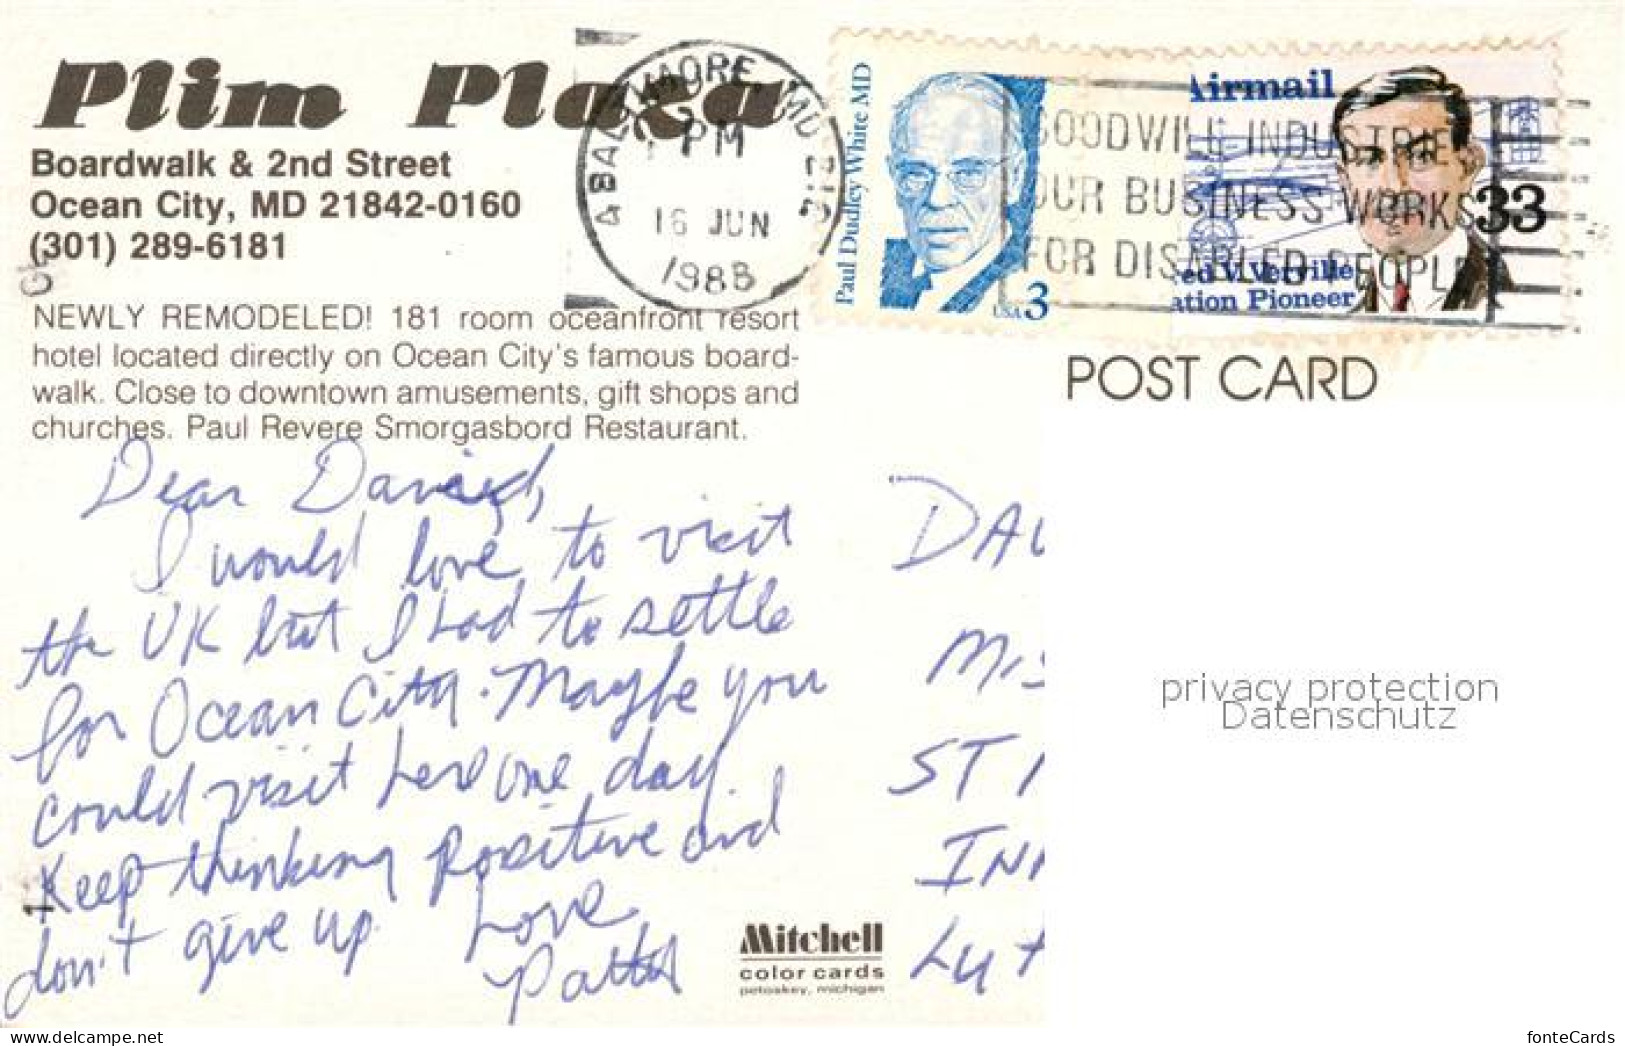 Plim Plaza
Boardwalk & 2nd Street
Ocean City, MD 21842-0160
(301) 289-6181
NEWLY REMODELED! 181 room oceanfront resort
hotel located directly on Ocean City's famous board-
walk. Close to downtown amusements, gift shops and
churches. Paul Revere Smorgasbord Restaurant.
BALTIMORE, MD 212
PM
16 JUN
1988
Paul Dudley White MD
USA 3
GOODWILL INDUSTRIES
OUR BUSINESS WORKS
FOR DISABLED PEOPLE
Airmail
33
ed V. Verville
ation Pioneer
POST CARD
Dear David,
I would love to visit
the UK but I had to settle
for Ocean City. Maybe you
could visit here one day.
Keep thinking positive and
don't give up. Love
DAV
MIS
ST
INN
LUT
Mitchell
color cards
petoskey, michigan
privacy protection
Datenschutz
www.delcampe.net
fonteCards